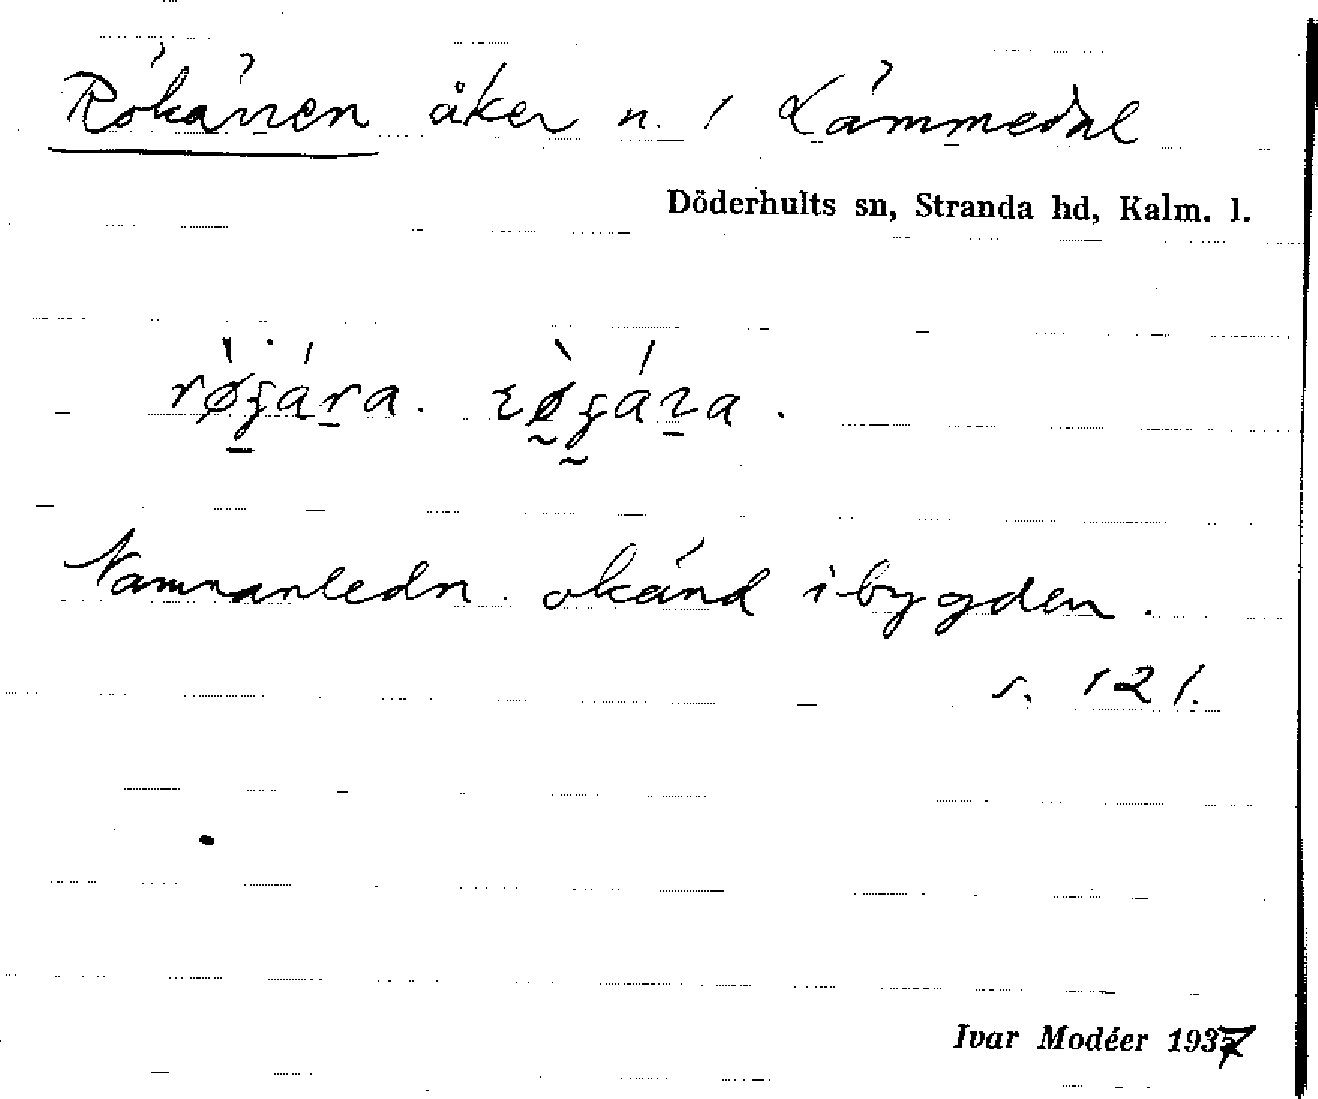 Rökärren åker n. 1 Lämmedal
Döderhults sn, Stranda hd, Kalm. l.
Namnanledn. okänd i bygden.
s. 121.
Ivar Modéer 1937